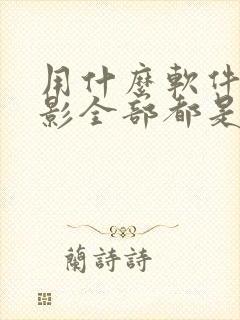 用什麼軟件
影全部都是
蘭詩詩